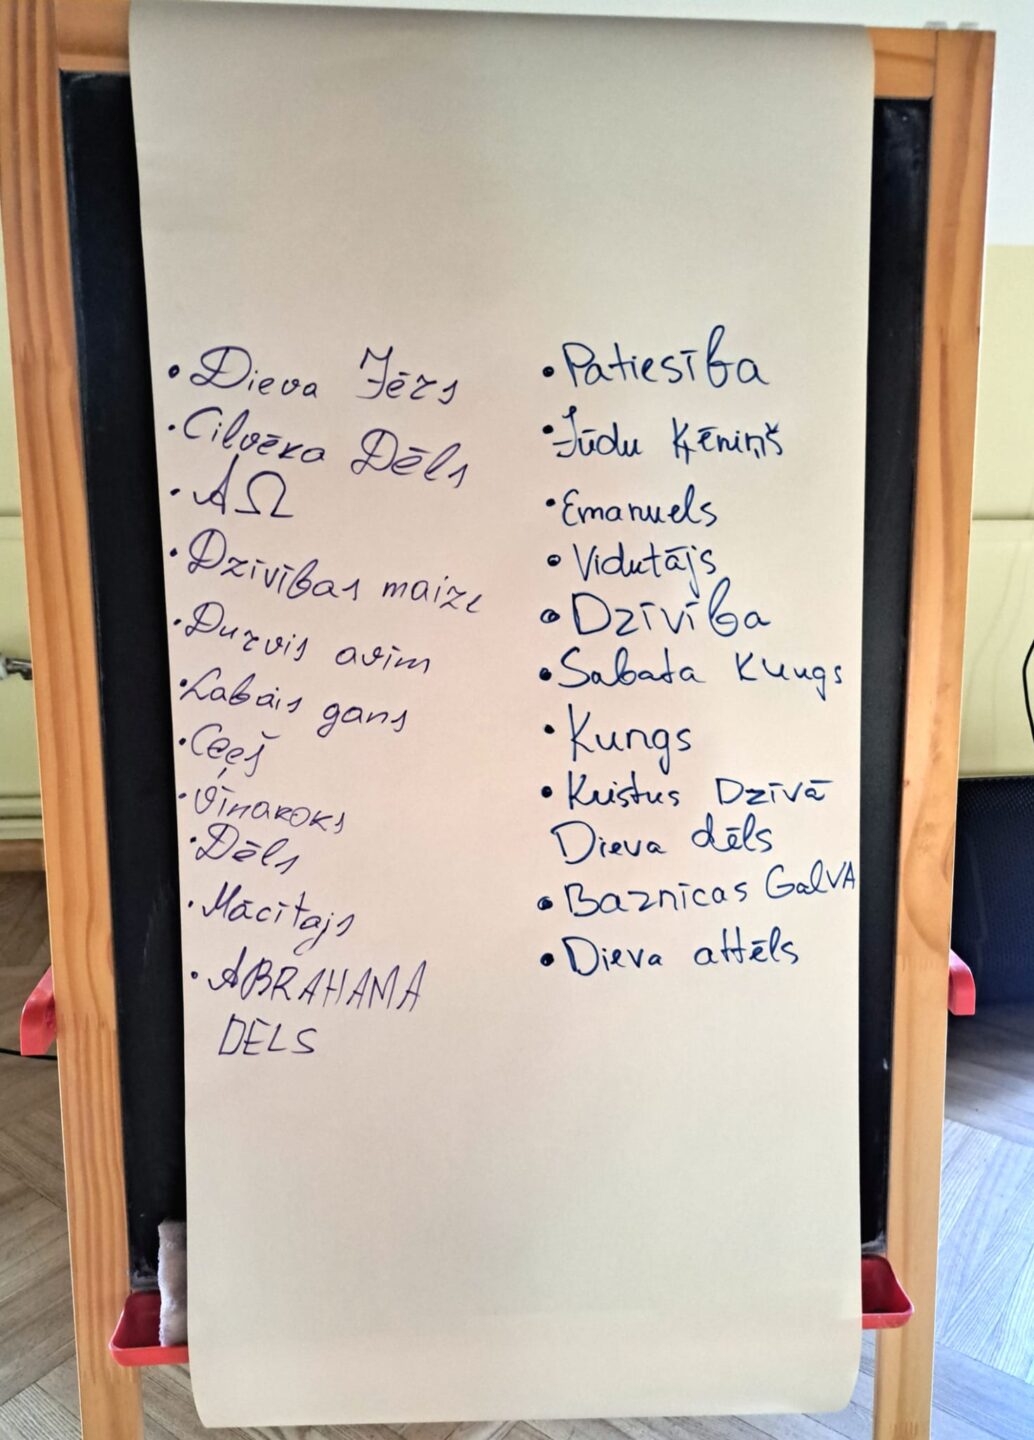 • Dieva Jērs
• Cilvēka Dēls
• AΩ
• Dzīvības maize
• Durvis avīm
• Labais gans
• Ceļš
• Vīnakoks
• Dēls
• Mācītājs
• ABRAHAMA
DĒLS
• Patiesība
• Jūdu Ķēniņš
• Emanuels
• Vidutājs
• Dzīvība
• Sabata Kungs
• Kungs
• Kristus Dzīvā
Dieva dēls
• Baznīcas GalvA
• Dieva attēls